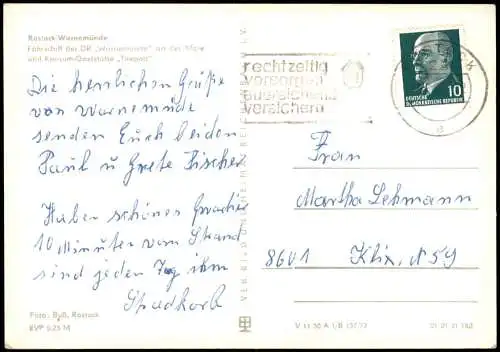 Rostock Warnemünde
Fährschiff der DR „Warnemünde" an der Mole
und Konsum-Gaststätte „Teepott"
Die herrlichen Grüße
von Warnemünde
senden Euch beiden
Paul u Grete Fischer
Haben schönes
10 Minuten vom Strand
sind jeden Tag im
Strandkorb
Foto: Bäß, Rostock
EVP 0,25 M
VEB BILD UND HEIMAT REICHENBACH I. V.
rechtzeitig
vorsorgen
ausreichend
versichern
10
DEUTSCHE
DEMOKRATISCHE REPUBLIK
Frau
Martha Lehmann
8601 Klix, N 59
V 11 50 A 1/B 157/73 01 01 01 162